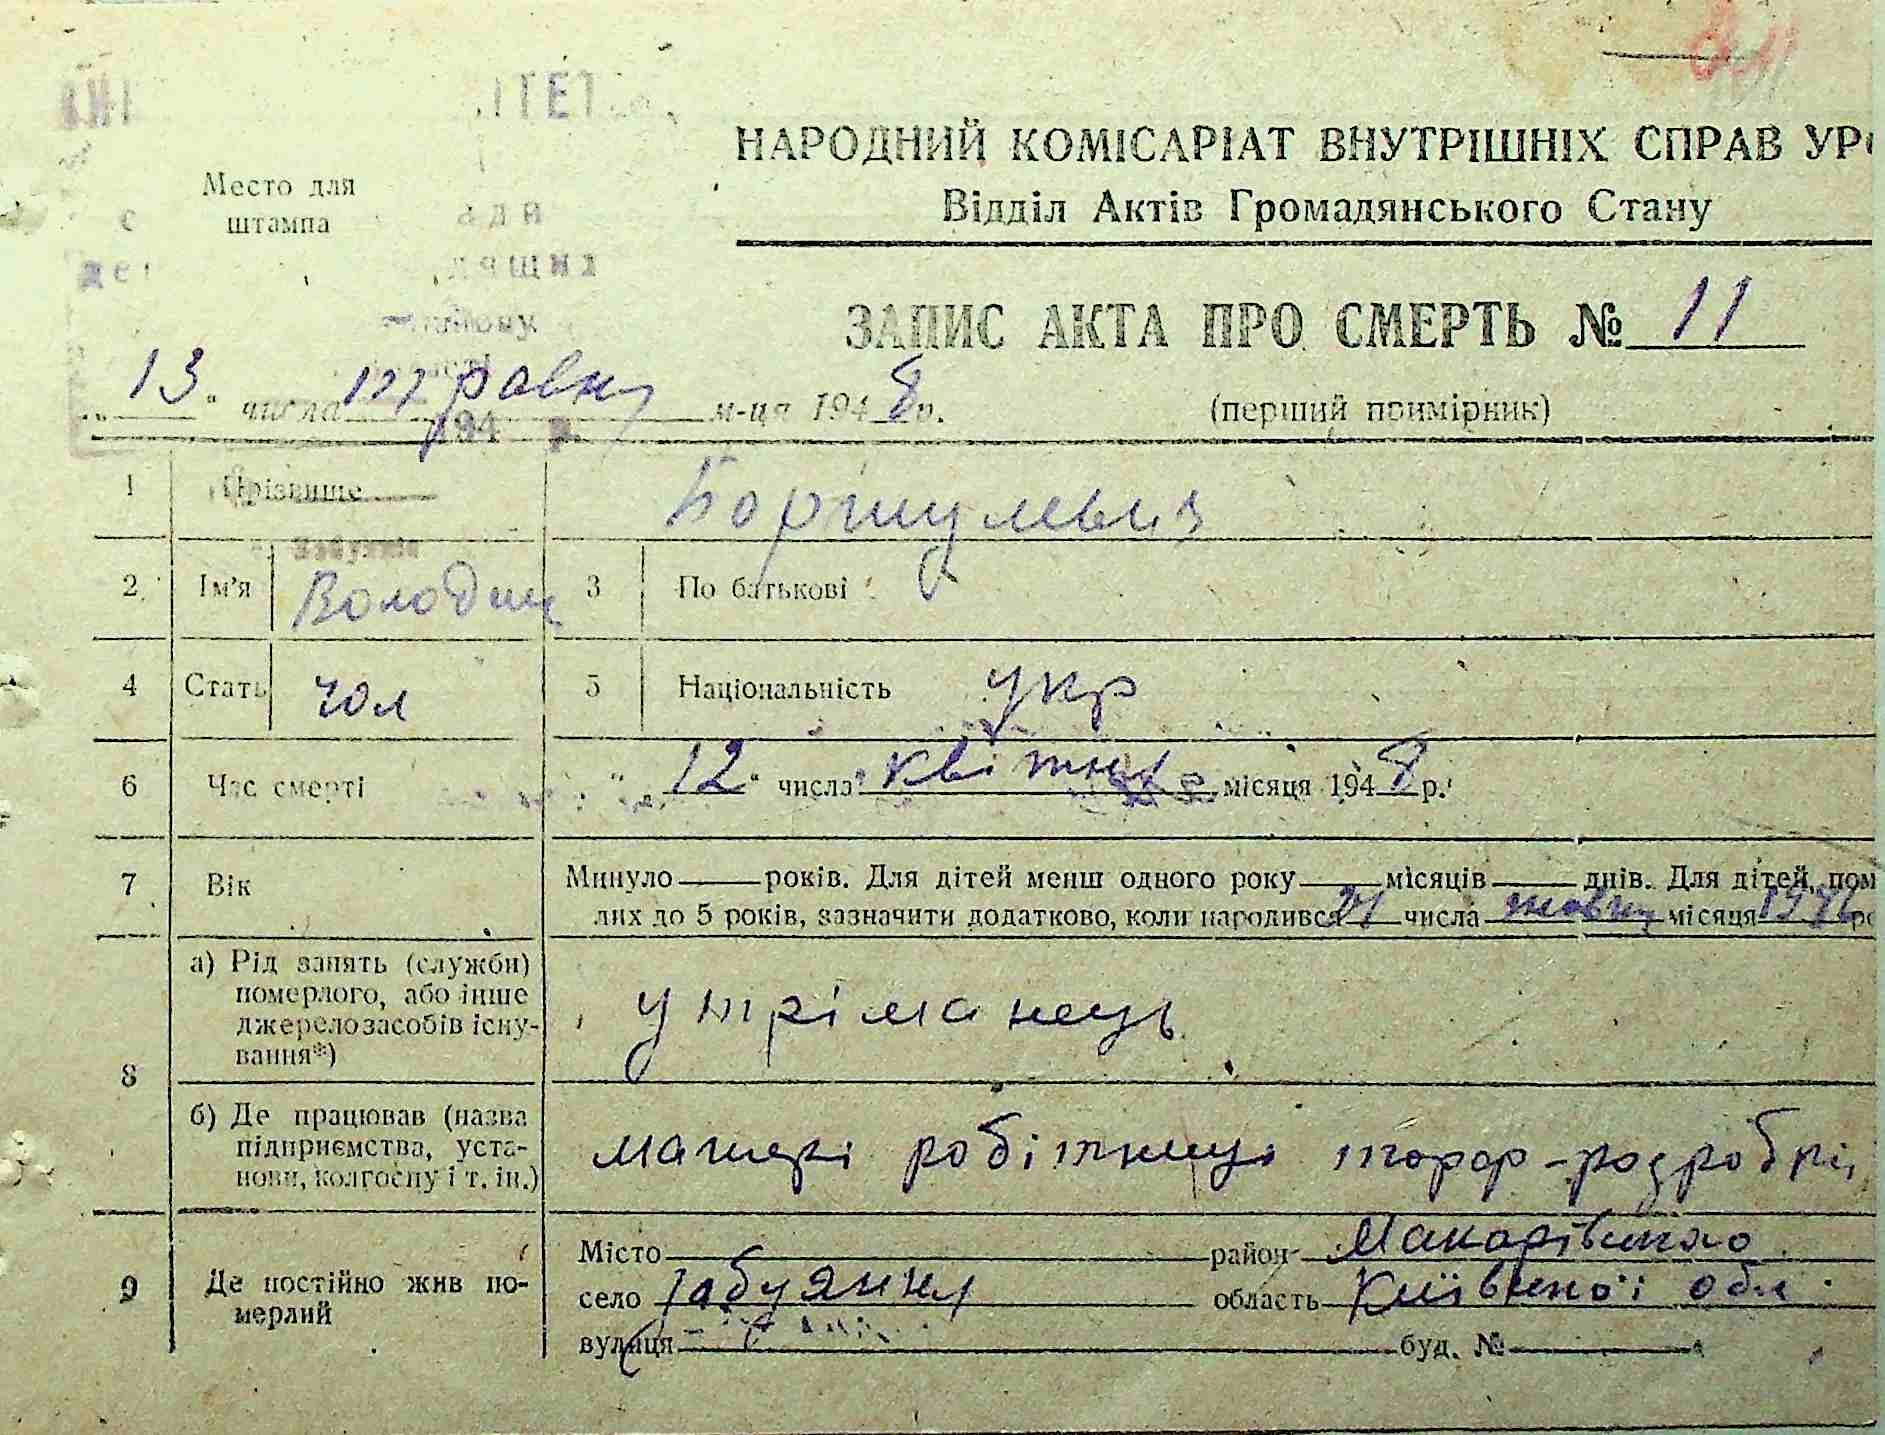 НАРОДНИЙ КОМІСАРІАТ ВНУТРІШНІХ СПРАВ УР
Відділ Актів Громадянського Стану
Место для
штампа
ЗАПИС АКТА ПРО СМЕРТЬ № 11
„13“ числа травня м-ця 1948 р.
(перший примірник)
1 Прізвище
2 Ім'я Володим 3 По батькові
4 Стать чол 5 Національність укр
6 Час смерті „12“ числа квітня місяця 1948 р.
7 Вік Минуло — років. Для дітей менш одного року — місяців — днів. Для дітей, пом
лих до 5 років, зазначити додатково, коли народився числа жовтня місяця 1946 ро
8 а) Рід занять (служби)
померлого, або інше
джерело засобів існу-
вання*)
утріманець
б) Де працював (назва
підприємства, уста-
нови, колгоспу і т. ін.)
матері робітниці торф-розробрі
9 Де постійно жив по-
мерлий
Місто — район Макарівсько
село Забуяння область Київської обл
вулиця — буд. № —